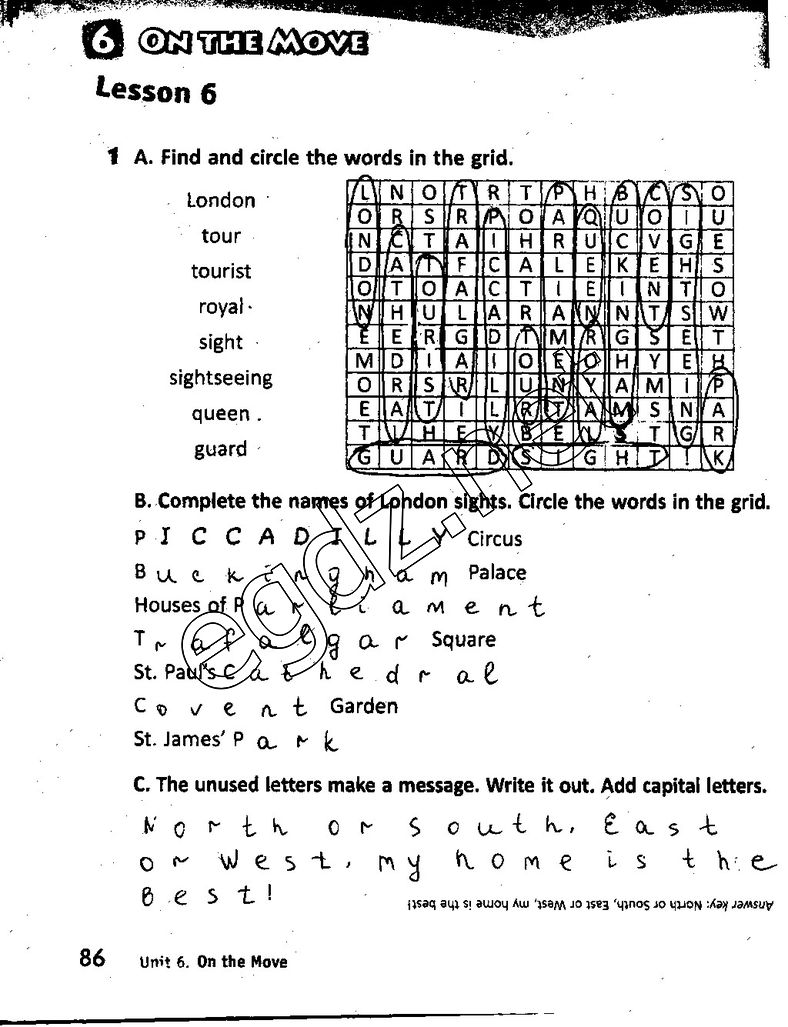 6 ON THE MOVE
Lesson 6
1 A. Find and circle the words in the grid.
London
tour
tourist
royal
sight
sightseeing
queen
guard
L N O T R T P H B C S O
O R S R P O A Q U O I U
N C T A I H R U C V G E
D A T F C A L E K E H S
O T O A C T I E I N T O
N H U L A R A N N T S W
E E R G D T M R G S E T
M D I A I O E O H Y E H
O R S R L U N Y A M I P
E A T I L R T A M S N A
T L H E Y B E L S T G R
G U A R D S I G H T ! K
B. Complete the names of London sights. Circle the words in the grid.
P I C C A D I L L Y Circus
B u c k i n g h a m Palace
Houses of P a r l i a m e n t
T r a f a l g a r Square
St. Paul's C a t h e d r a l
C o v e n t Garden
St. James' P a r k
C. The unused letters make a message. Write it out. Add capital letters.
N o r t h o r S o u t h, E a s t
o r W e s t, m y h o m e i s t h e
B e s t!
Answer key: North or South, East or West, my home is the best!
86 Unit 6. On the Move
egdz.net